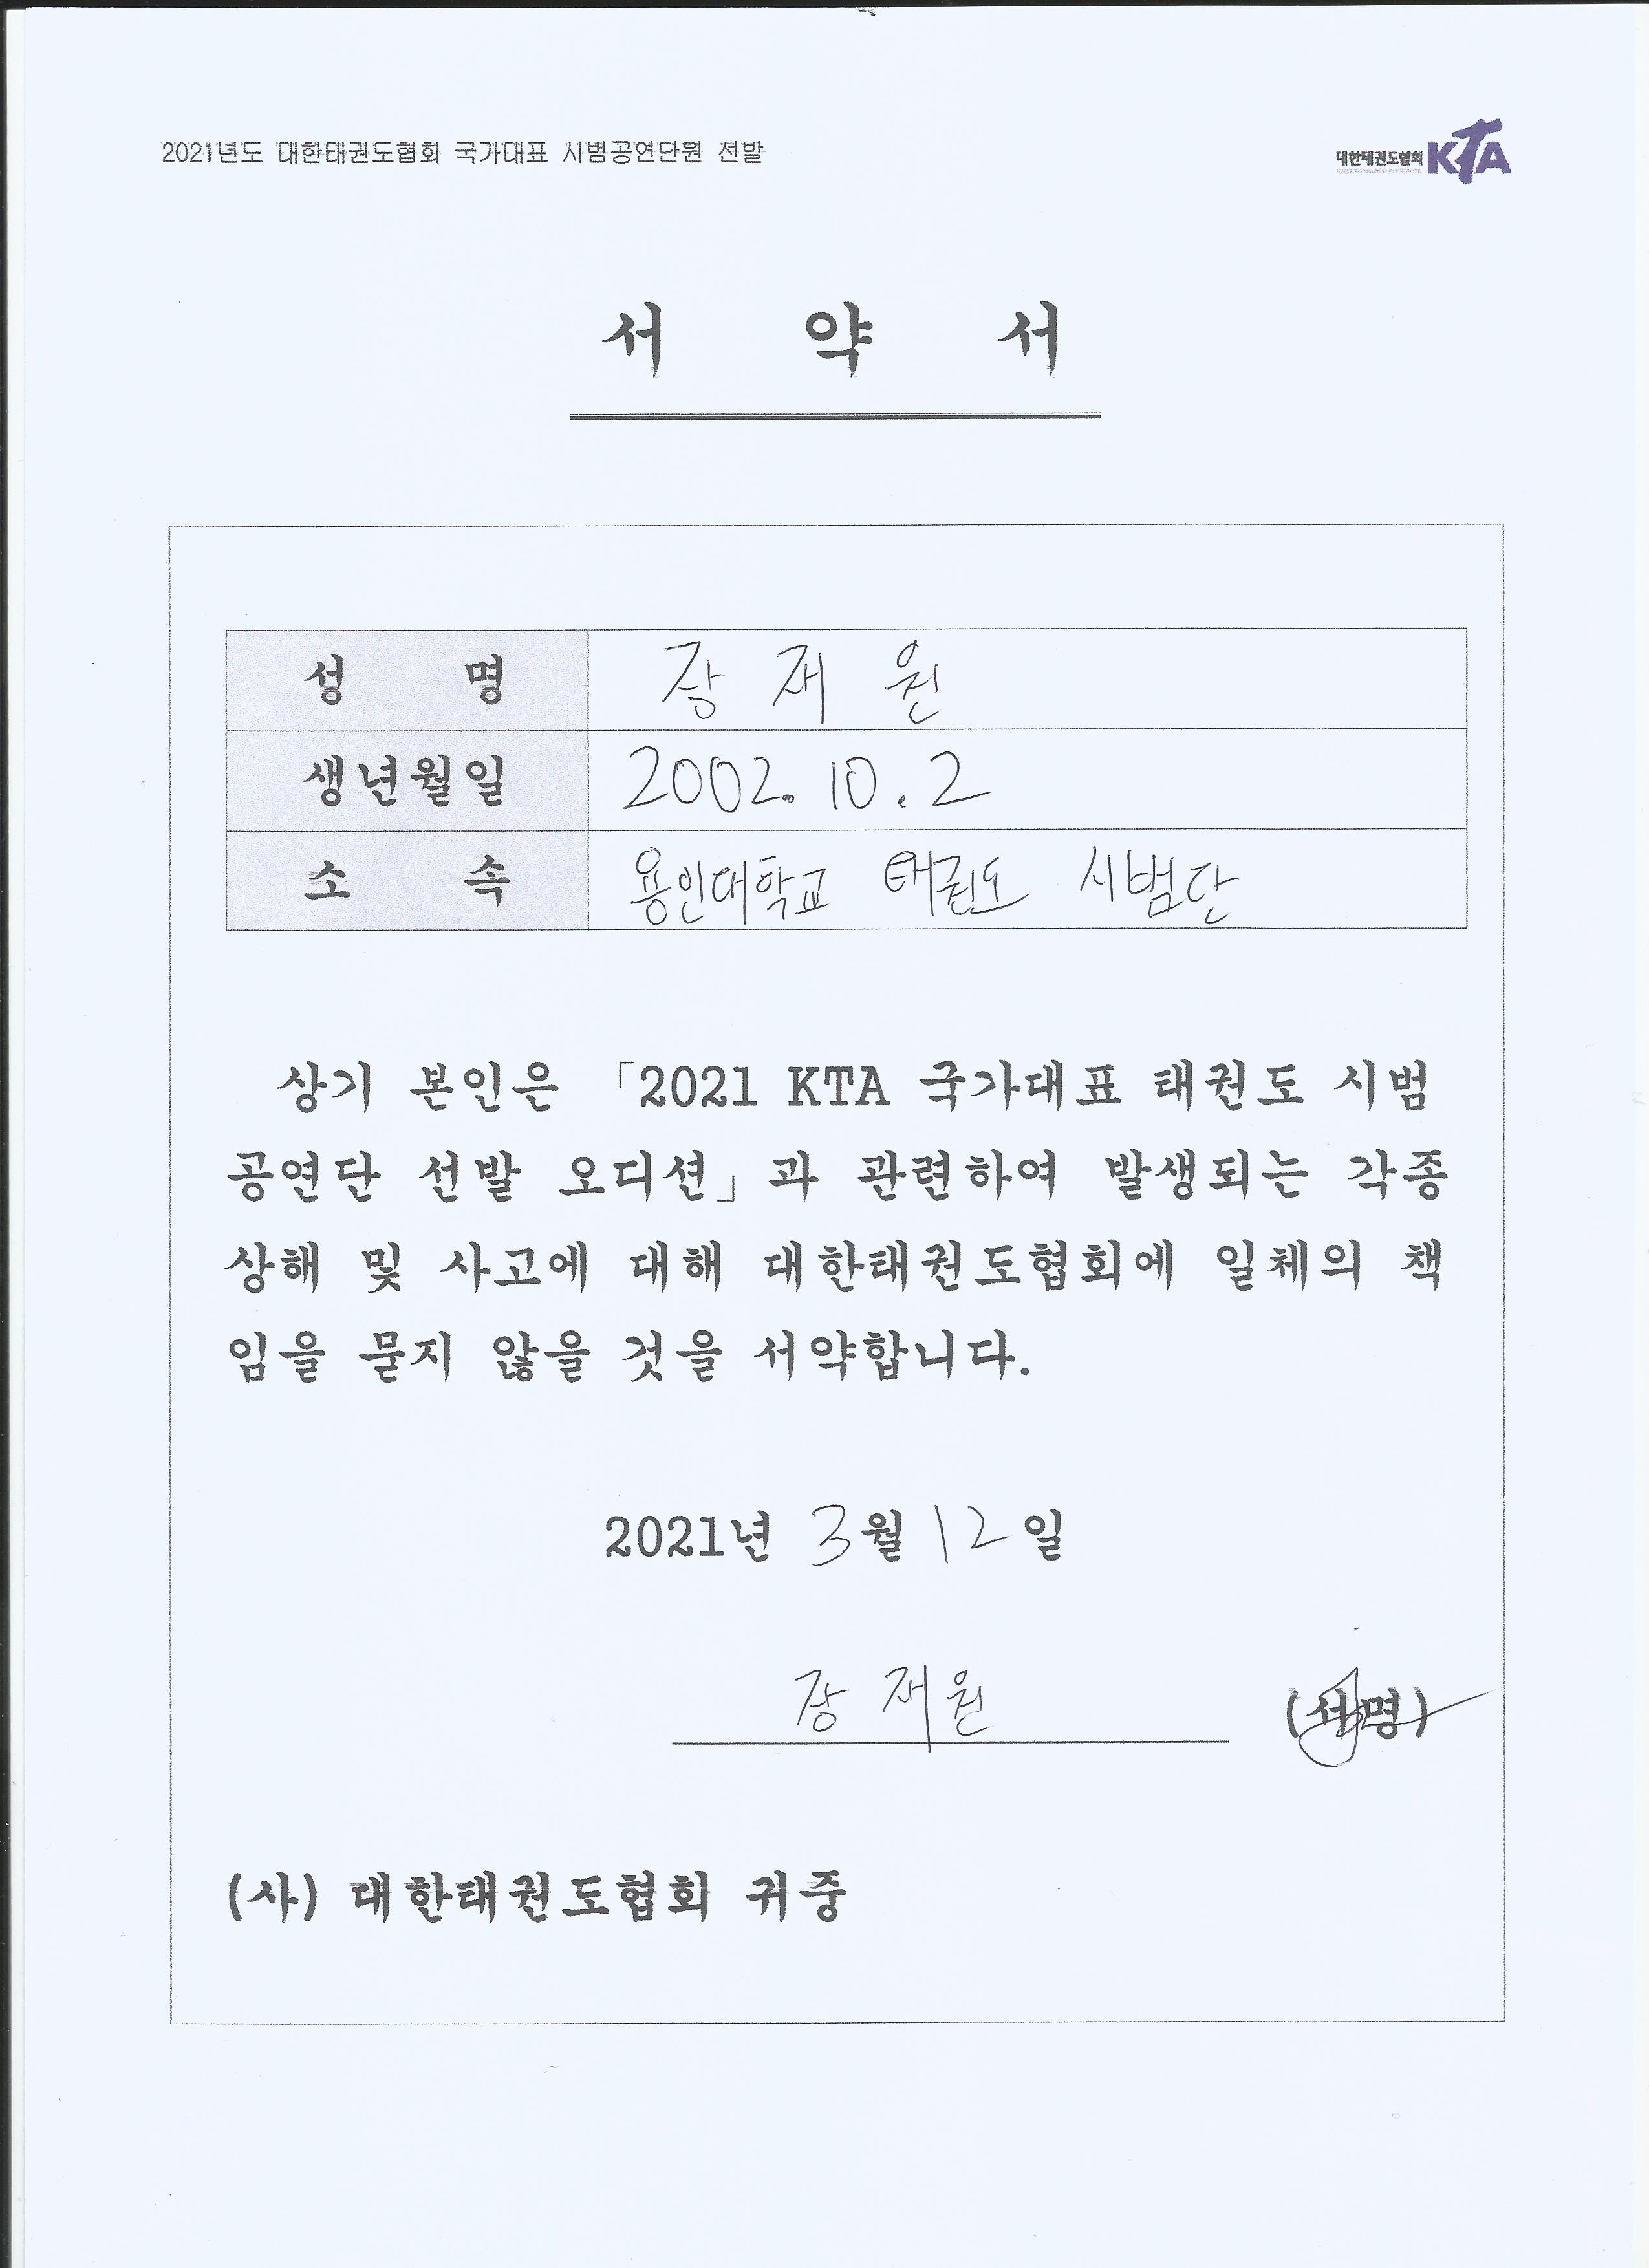 2021년도 대한태권도협회 국가대표 시범공연단원 선발
대한태권도협회 KTA
서 약 서
성 명 장 재 원
생년월일 2002. 10. 2
소 속 용인대학교 태권도 시범단
상기 본인은 「2021 KTA 국가대표 태권도 시범
공연단 선발 오디션」과 관련하여 발생되는 각종
상해 및 사고에 대해 대한태권도협회에 일체의 책
임을 묻지 않을 것을 서약합니다.
2021년 3월 12일
장 재 원 (서명)
(사) 대한태권도협회 귀중